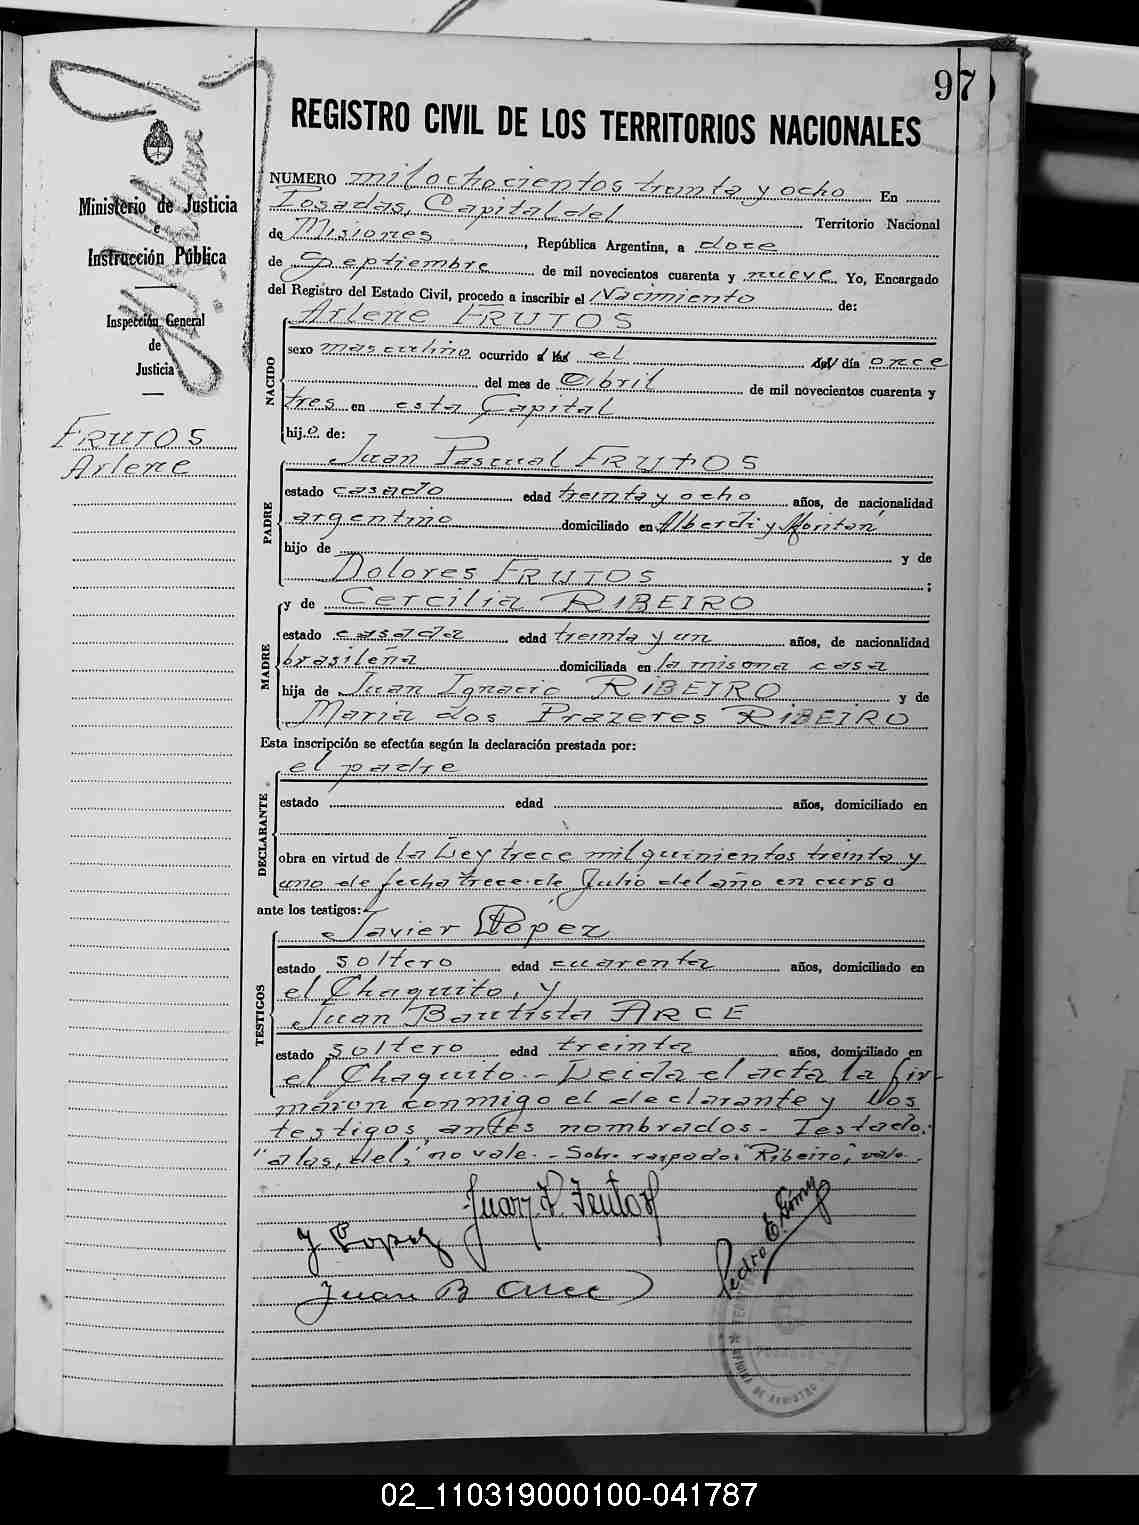 97
REGISTRO CIVIL DE LOS TERRITORIOS NACIONALES
Ministerio de Justicia
e
Instrucción Pública
Inspección General
de
Justicia
FRUTOS
Arlene
NUMERO mil ochocientos treinta y ocho En
Posadas, Capital del Territorio Nacional
de Misiones, República Argentina, a doce
de Septiembre de mil novecientos cuarenta y nueve Yo, Encargado
del Registro del Estado Civil, procedo a inscribir el Nacimiento de:
NACIDO
Arlene FRUTOS
sexo masculino ocurrido a las el del día once
del mes de Abril de mil novecientos cuarenta y
tres en esta Capital
hijo de:
PADRE
Juan Pascual FRUTOS
estado casado edad treinta y ocho años, de nacionalidad
argentino domiciliado en Alberdi y
hijo de y de
Dolores FRUTOS ;
MADRE
y de Cercilia RIBEIRO
estado casada edad treinta y un años, de nacionalidad
brasileña domiciliada en la misma casa
hija de Juan Ignacio RIBEIRO y de
Maria dos Prazeres RIBEIRO
Esta inscripción se efectúa según la declaración prestada por:
DECLARANTE
el padre
estado edad años, domiciliado en
obra en virtud de la Ley trece mil quinientos treinta y
uno de fecha trece de Julio del año en curso
ante los testigos:
TESTIGOS
Javier López
estado soltero edad cuarenta años, domiciliado en
el Chaquito, y
Juan Bautista ARCE
estado soltero edad treinta años, domiciliado en
el Chaquito.- Leida el acta la fir-
maron conmigo el declarante y los
testigos antes nombrados.- Testado:
"a las, del," no vale.- Sobre raspado: "Ribeiro", vale.
Juan P. Frutos
J Lopez
Pedro E. Gomez
Juan B Arce
02_110319000100-041787